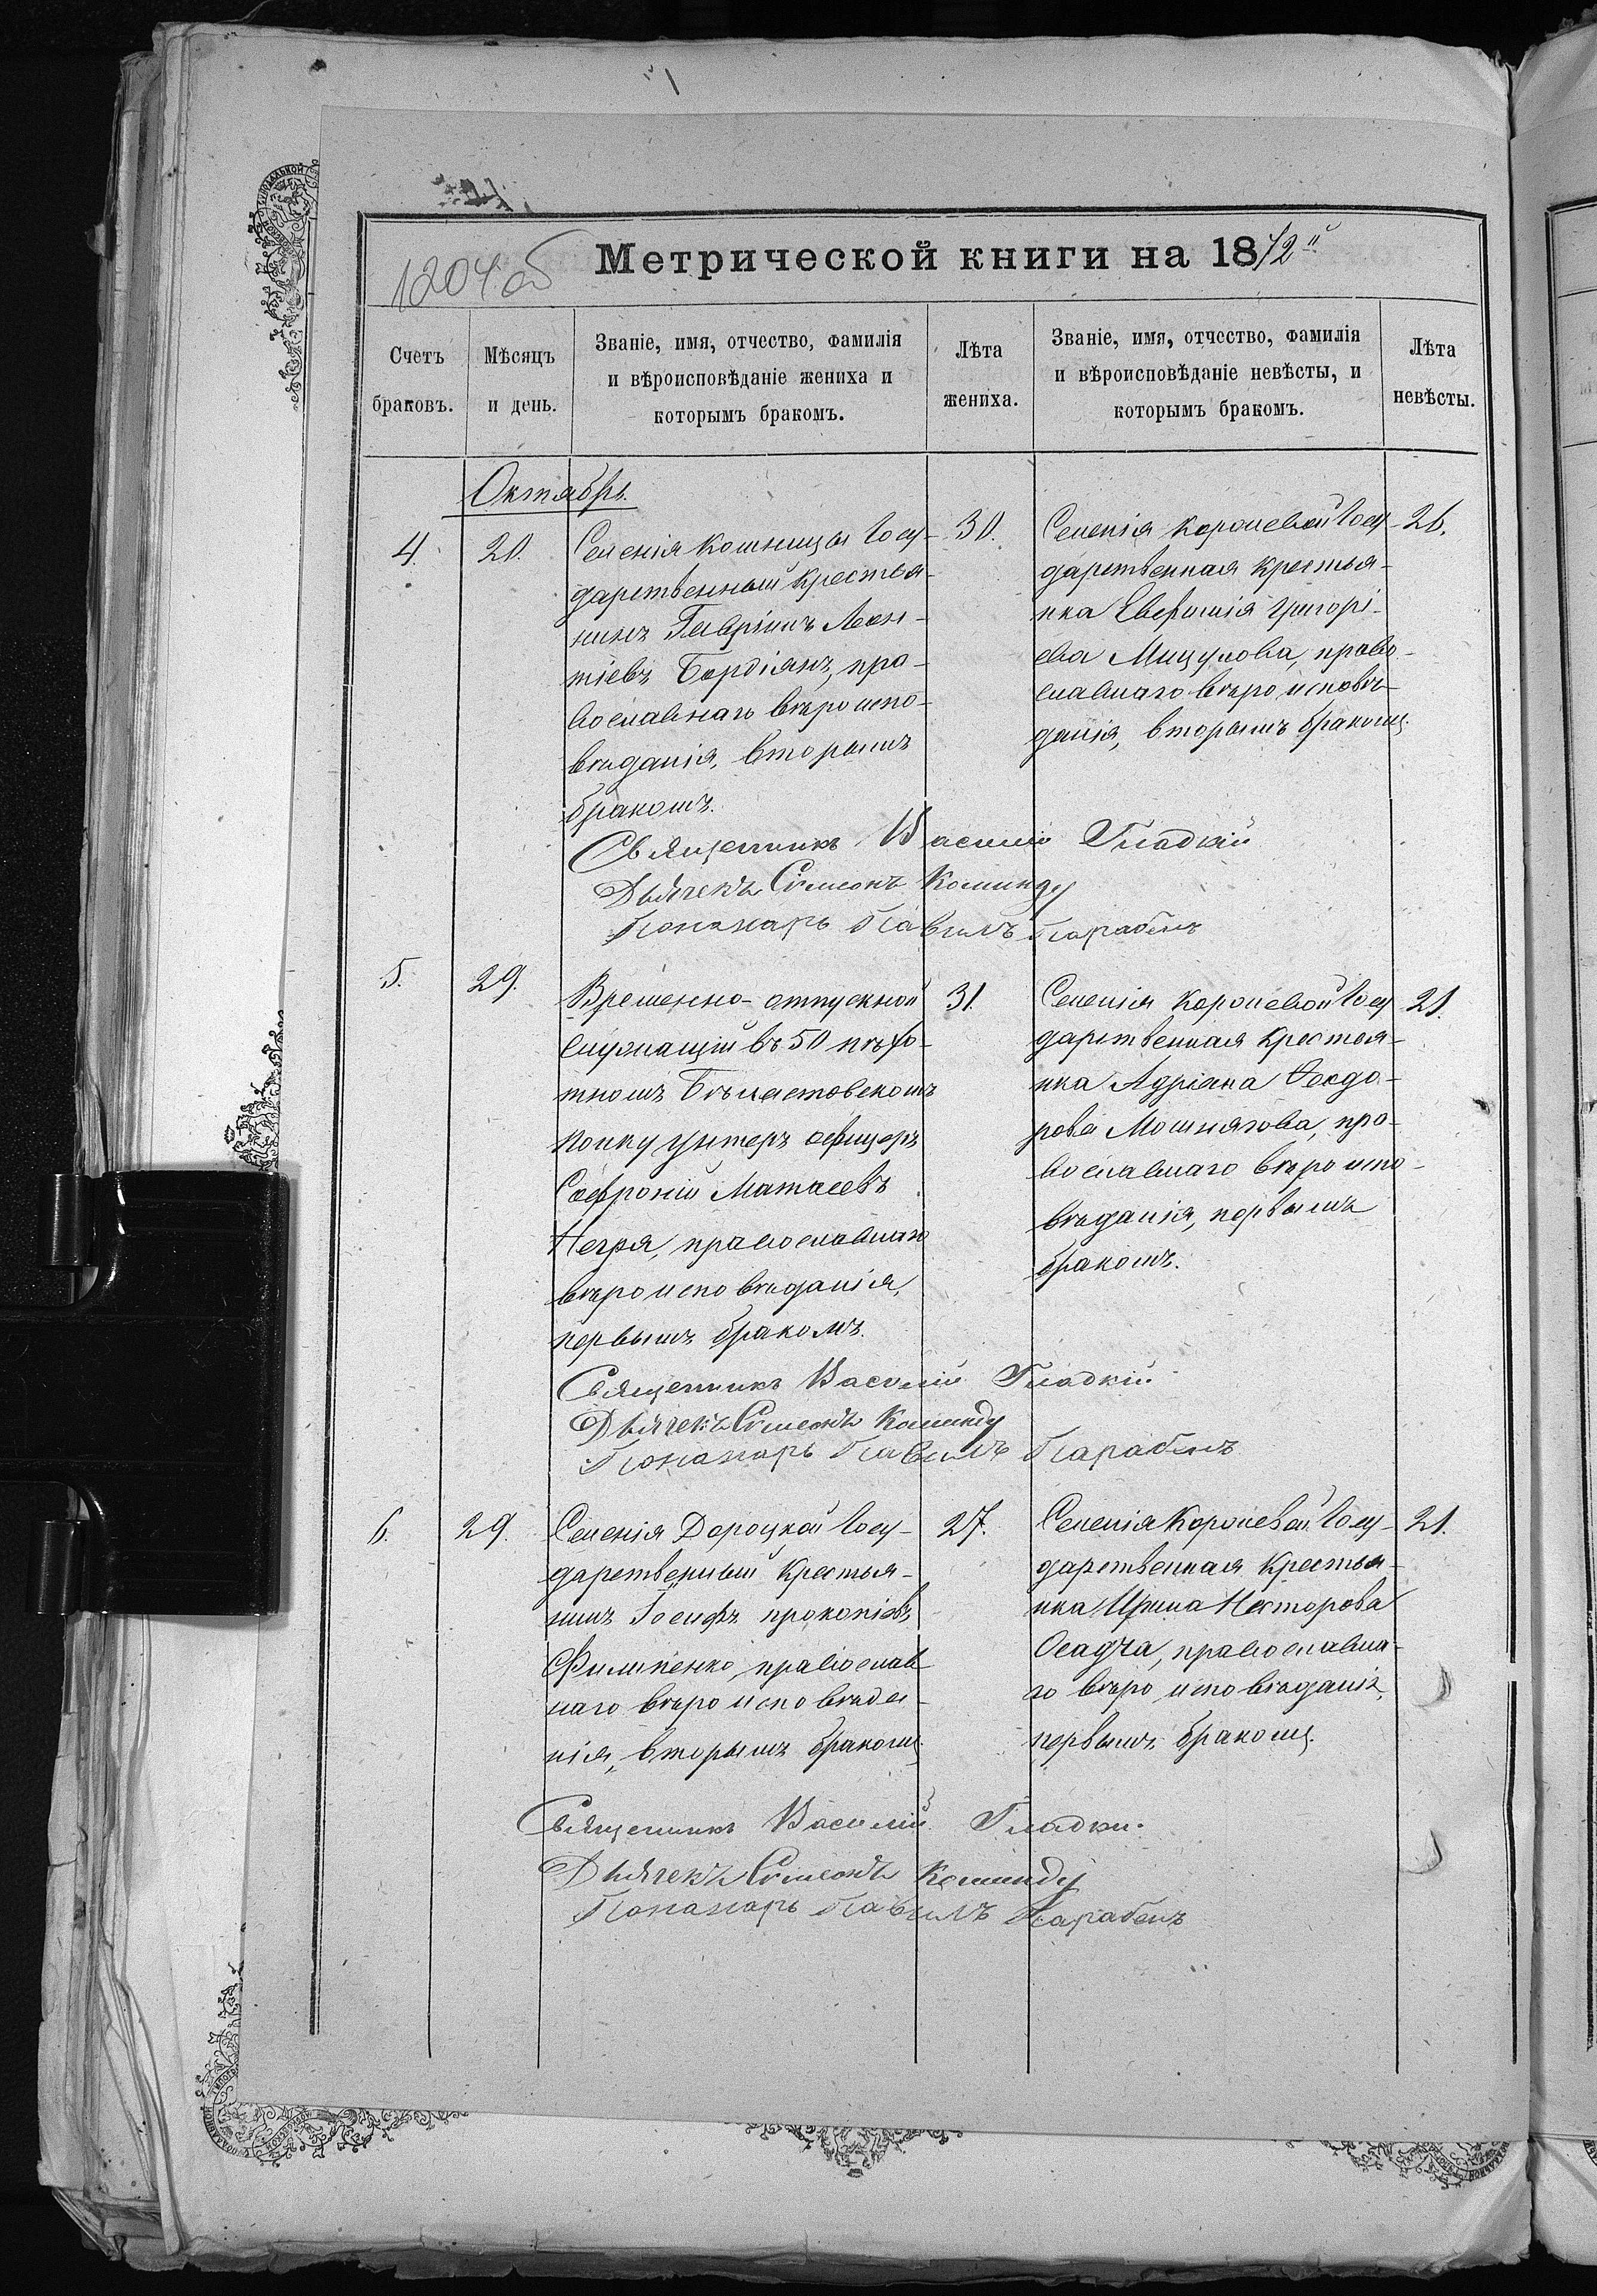 1204 об
Метрической книги на 1872й
Счетъ браковъ.
Мѣсяцъ и день.
Званіе, имя, отчество, фамилія и вѣроисповѣданіе жениха и которымъ бракомъ.
Лѣта жениха.
Званіе, имя, отчество, фамилія и вѣроисповѣданіе невѣсты, и которымъ бракомъ.
Лѣта невѣсты.
Октябрь.
4.
20.
Селенія Кошницы Госу-
дарственный крестья-
нинъ Гавріилъ Леон-
тіевъ Бордіянъ, пра-
вославнаго вѣроиспо-
вѣданія, вторымъ
бракомъ.
30.
Селенія Коржевой Госу-
дарственная крестья-
нка Евфимія Григорі-
ева Мицулова, право-
славнаго вѣроисповѣ-
данія, вторымъ бракомъ.
26.
Священникъ Василій Гладкій
Дьячекъ Симеонъ Команду
Пономарь Павелъ Карабетъ
5.
29.
Временно-отпускной
служащій въ 50 пѣхо-
тномъ Бѣлостокскомъ
полку унтеръ офицеръ
Софроній Матвеевъ
Негря, православнаго
вѣроисповѣданія,
первымъ бракомъ.
31.
Селенія Коржевой Госу-
дарственная крестья-
нка Адріана Ѳеодо-
рова Мошнягова, пра-
вославнаго вѣроиспо-
вѣданія, первымъ
бракомъ.
21.
Священникъ Василій Гладкій
Дьячекъ Симеонъ Команду
Пономарь Павелъ Карабетъ
6.
29.
Селенія Дороцкой Госу-
дарственный крестья-
нинъ Іосифъ Прокопіевъ
Филипенко, православ-
наго вѣроисповѣда-
нія, вторымъ бракомъ.
27.
Селенія Коржевой Госу-
дарственная крестья-
нка Ирина Несторова
Осадча, православна-
го вѣроисповѣданія,
первымъ бракомъ.
21.
Священникъ Василій Гладкій
Дьячекъ Симеонъ Команду
Пономарь Павелъ Карабетъ